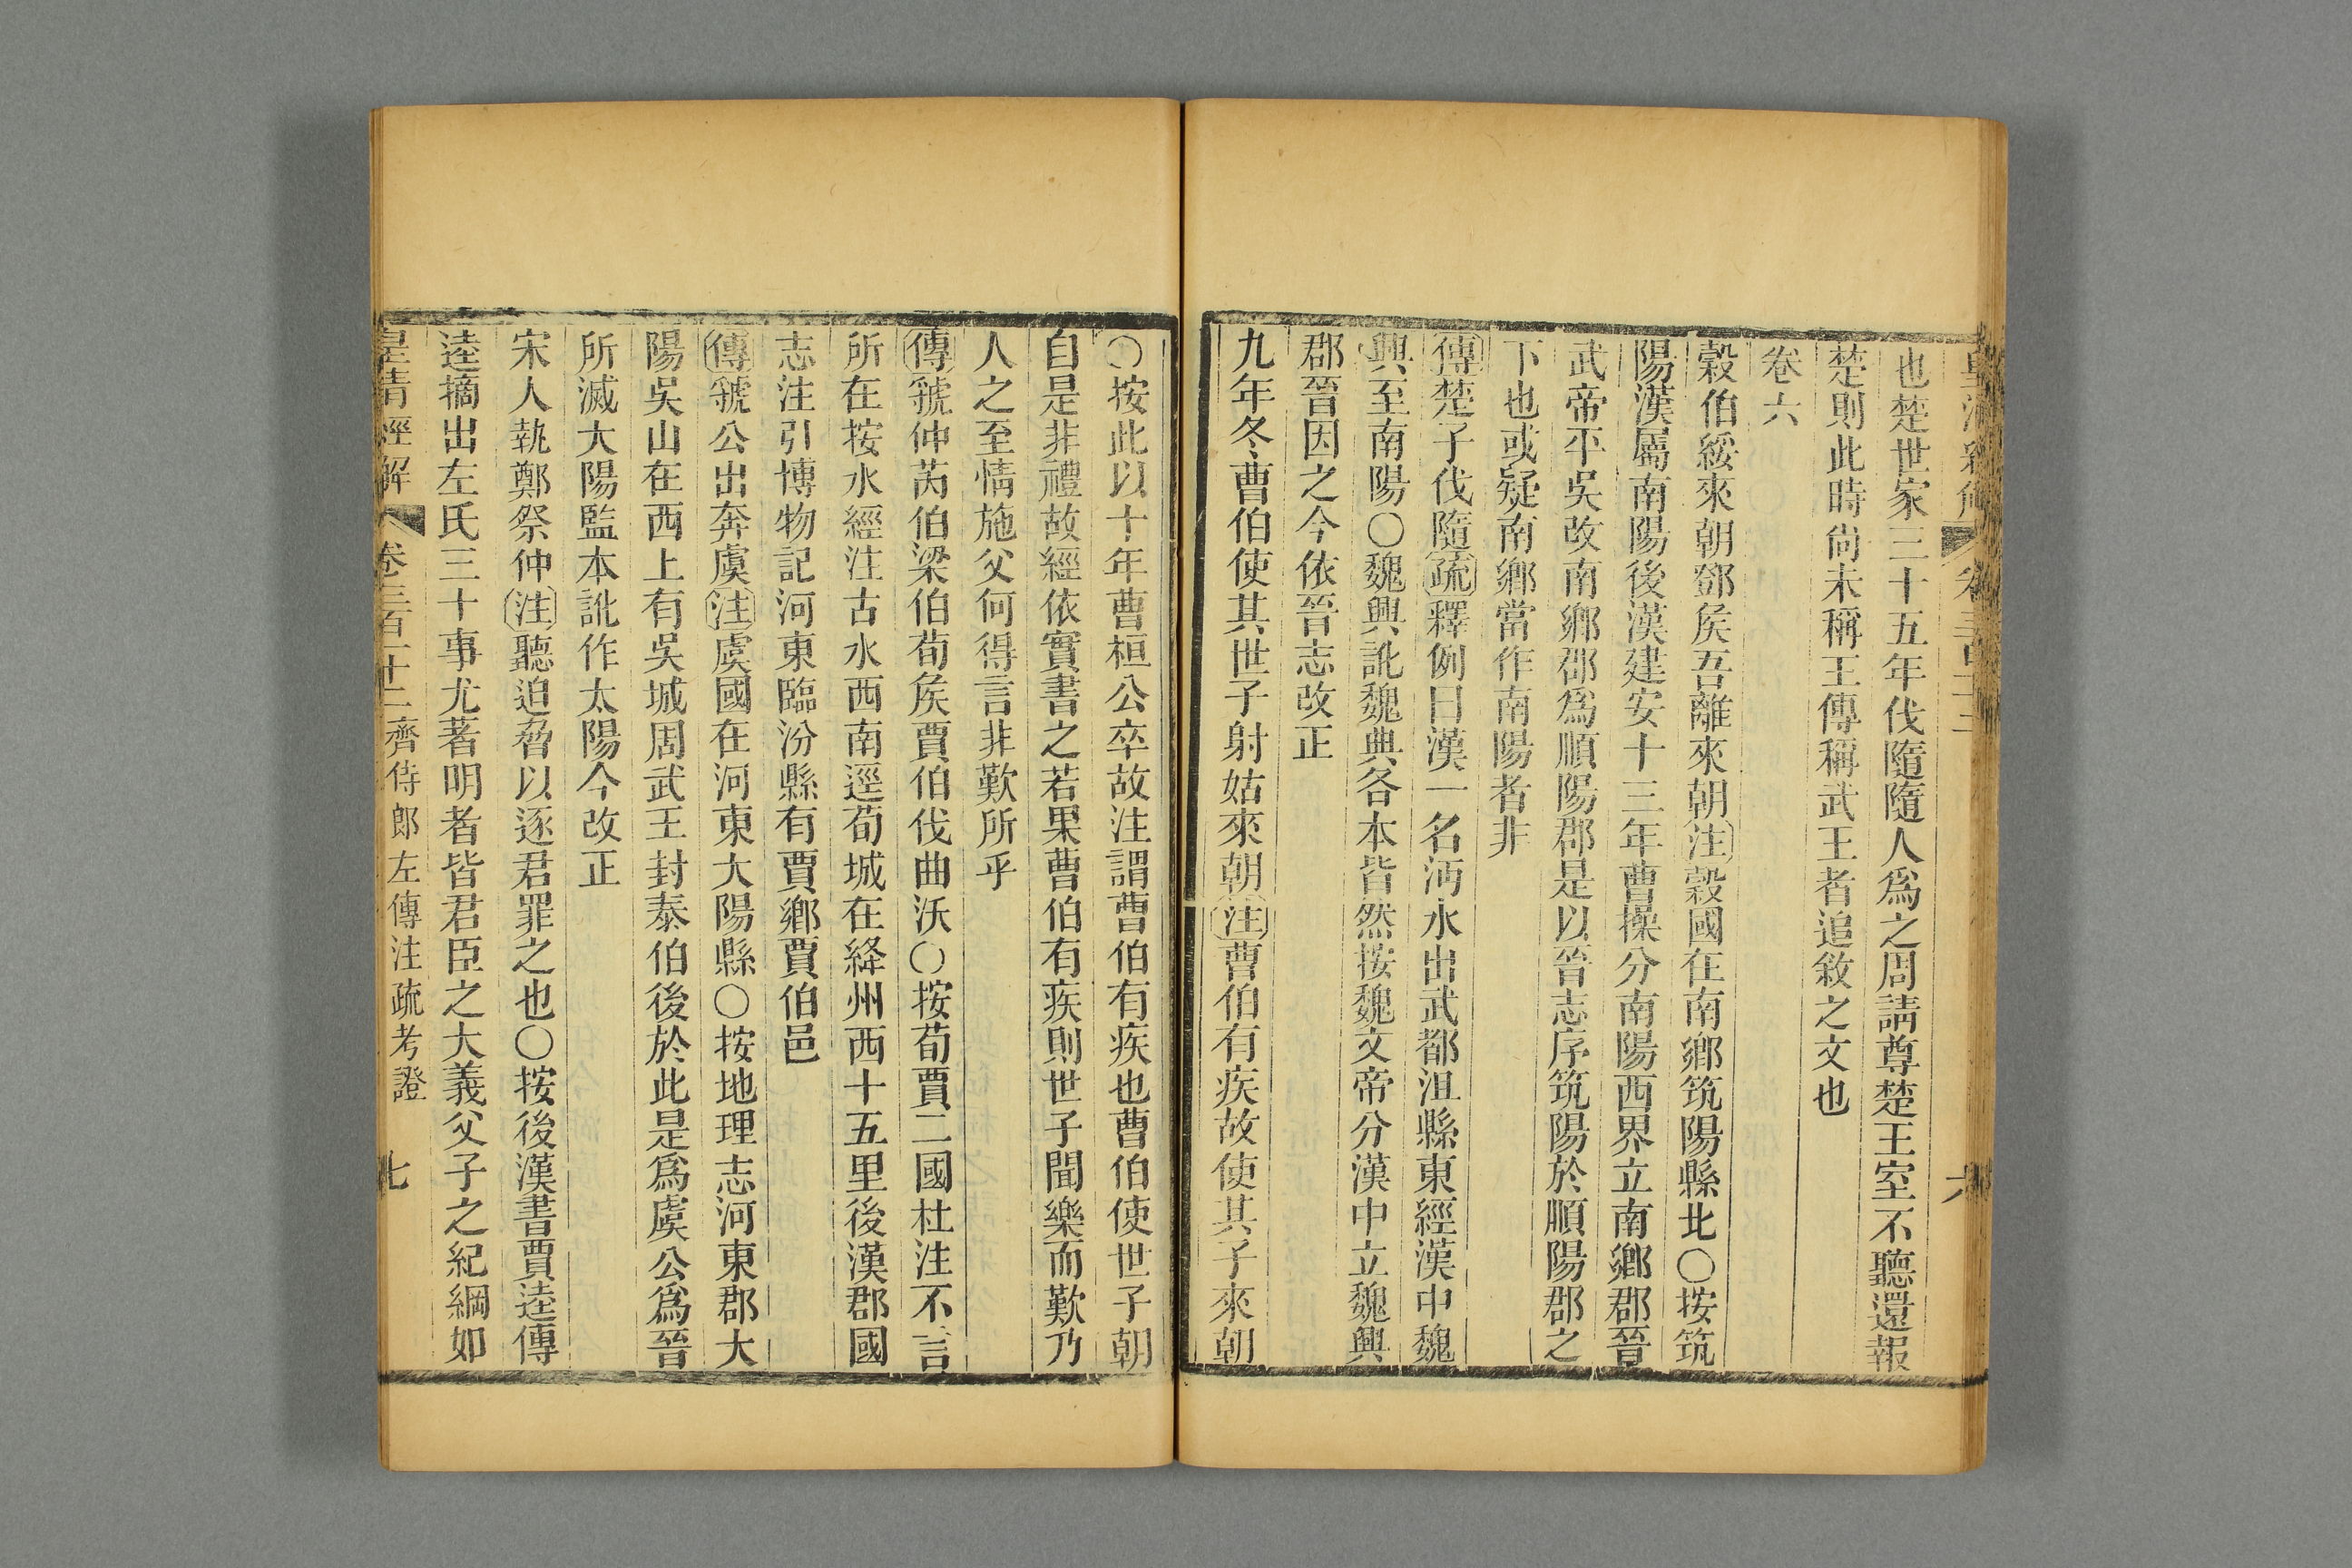 也楚世家三十五年伐隨隨人爲之周請尊楚王室不聽還報
楚則此時尙未稱王傳稱武王者追敘之文也
卷六
穀伯綏來朝鄧矦吾離來朝注穀國在南鄉筑陽縣北○按筑
陽漢屬南陽後漢建安十三年曹操分南陽西界立南鄉郡晉
武帝平吳改南鄉郡爲順陽郡是以晉志序筑陽於順陽郡之
下也或疑南鄉當作南陽者非
傳楚子伐隨疏釋例曰漢一名沔水出武都沮縣東經漢中魏
興至南陽○魏興訛魏典各本皆然按魏文帝分漢中立魏興
郡晉因之今依晉志改正
九年冬曹伯使其世子射姑來朝注曹伯有疾故使其子來朝
○按此以十年曹桓公卒故注謂曹伯有疾也曹伯使世子朝
自是非禮故經依實書之若果曹伯有疾則世子聞樂而歎乃
人之至情施父何得言非歎所乎
傳虢仲芮伯梁伯荀矦賈伯伐曲沃○按荀賈二國杜注不言
所在按水經注古水西南逕荀城在絳州西十五里後漢郡國
志注引博物記河東臨汾縣有賈鄉賈伯邑
傳虢公出奔虞注虞國在河東大陽縣○按地理志河東郡大
陽吳山在西上有吳城周武王封泰伯後於此是爲虞公爲晉
所滅大陽監本訛作太陽今改正
宋人執鄭祭仲注聽迫脅以逐君罪之也○按後漢書賈逵傳
逵摘出左氏三十事尤著明者皆君臣之大義父子之紀綱如
皇清經解 卷三百十二 齊侍郎左傳注疏考證 七